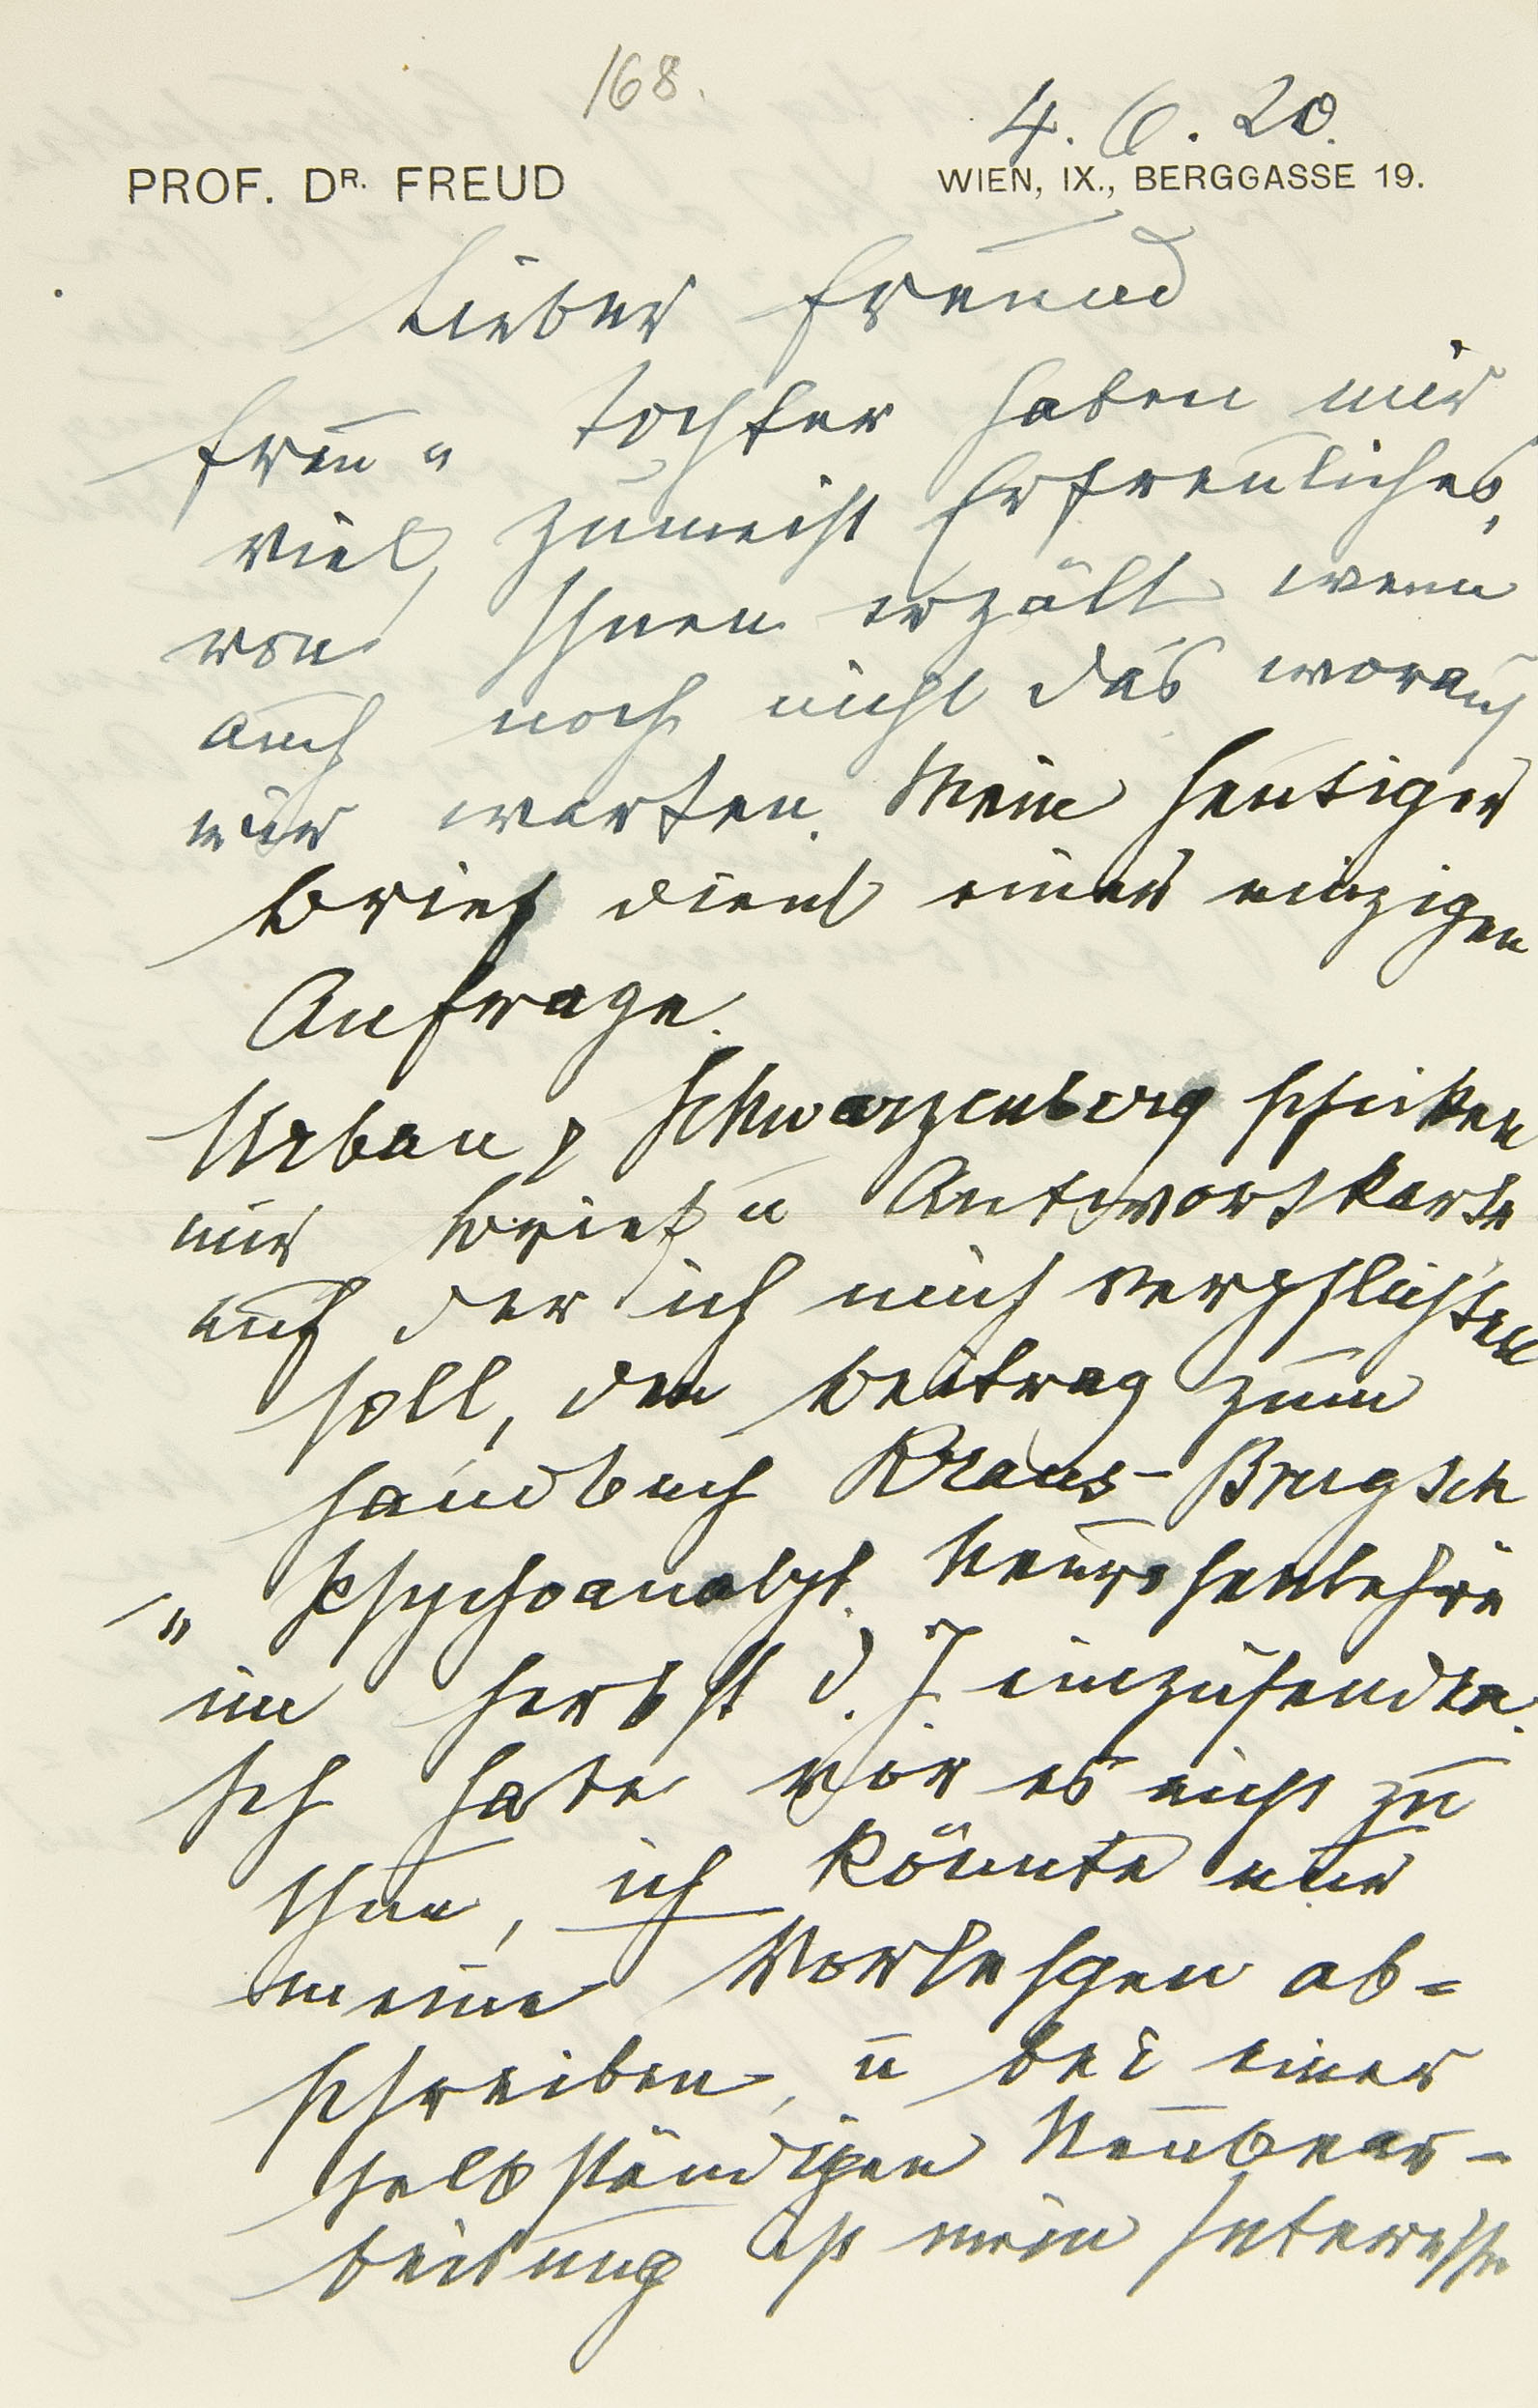 168.
4. 6. 20.
PROF. DR. FREUD
WIEN, IX., BERGGASSE 19.
Lieber Freund
Frau u Tochter haben mir
viel, zumeist Erfreuliches,
von Ihnen erzält wenn
auch noch nicht das worauf
wir warten. Mein heutiger
Brief dient einer einzigen
Anfrage.
Urban & Schwarzenberg schicken
mir Brief u Antwortkarte
auf der ich mich verpflichten
soll, den Beitrag zum
Handbuch Kraus-Brugsch
„Psychoanalyt. Neurosenlehre
im Herbst d. J. einzusenden.
Ich habe vor es nicht zu
thun, ich könnte nur
meine Vorlesgen ab=
schreiben, u bei einer
selbständigen Neubear-
beitung ist mein Interesse